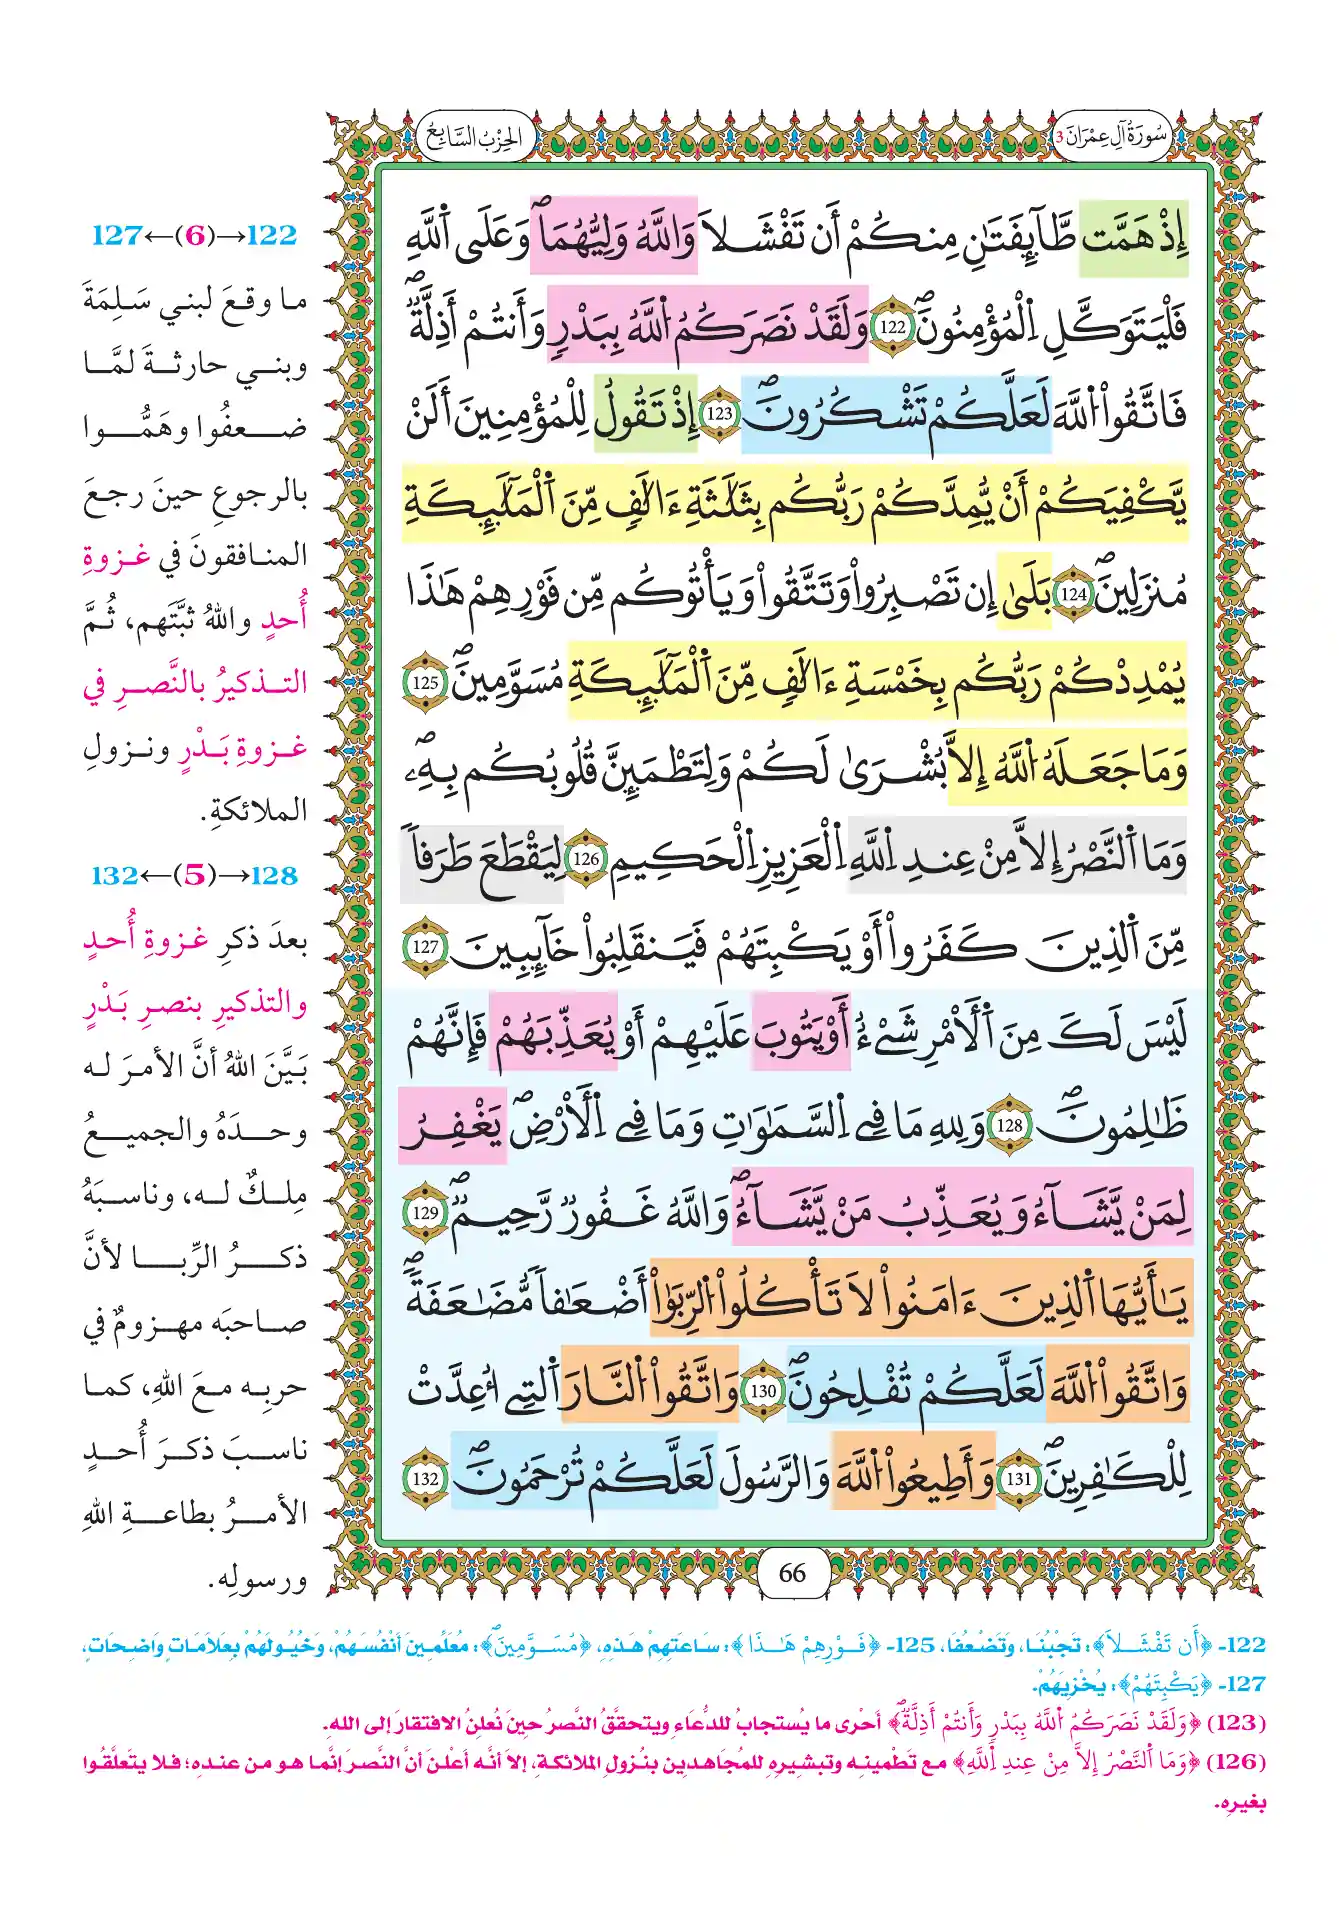 سُورَةُ آلِ عِمْرَانَ 3
الحِزْبُ السَّابِعُ
إِذْ هَمَّت طَّآئِفَتَٰنِ مِنكُمْ أَن تَفْشَلَا وَاللَّهُ وَلِيُّهُمَاۖ وَعَلَى اَ۬للَّهِ
فَلْيَتَوَكَّلِ اِ۬لْمُؤْمِنُونَۖ 122 وَلَقَدْ نَصَرَكُمُ اُ۬للَّهُ بِبَدْرٖ وَأَنتُمْ أَذِلَّةٞۖ
فَاتَّقُواْ اُ۬للَّهَ لَعَلَّكُمْ تَشْكُرُونَۖ 123 إِذْ تَقُولُ لِلْمُؤْمِنِينَ أَلَنْ
يَّكْفِيَكُمْ أَنْ يُّمِدَّكُمْ رَبُّكُم بِثَلَٰثَةِ ءَالَٰفٖ مِّنَ اَ۬لْمَلَٰٓئِكَةِ
مُنزَلِينَۖ 124 بَلَىٰ إِن تَصْبِرُواْ وَتَتَّقُواْ وَيَأْتُوكُم مِّن فَوْرِهِمْ هَٰذَا
يُمْدِدْكُمْ رَبُّكُم بِخَمْسَةِ ءَالَٰفٖ مِّنَ اَ۬لْمَلَٰٓئِكَةِ مُسَوَّمِينَۖ 125
وَمَا جَعَلَهُ اُ۬للَّهُ إِلَّا بُشْرَىٰ لَكُمْ وَلِتَطْمَئِنَّ قُلُوبُكُم بِهِۦۖ
وَمَا اَ۬لنَّصْرُ إِلَّا مِنْ عِندِ اِ۬للَّهِ اِ۬لْعَزِيزِ اِ۬لْحَكِيمِ 126 لِيَقْطَعَ طَرَفاٗ
مِّنَ اَ۬لذِينَ كَفَرُواْ أَوْ يَكْبِتَهُمْ فَيَنقَلِبُواْ خَآئِبِينَ 127
لَيْسَ لَكَ مِنَ اَ۬لْأَمْرِ شَےْءٌ أَوْ يَتُوبَ عَلَيْهِمْ أَوْ يُعَذِّبَهُمْ فَإِنَّهُمْ
ظَٰلِمُونَۖ 128 وَلِلهِ مَا فِي اِ۬لسَّمَٰوَٰتِ وَمَا فِي اِ۬لْأَرْضِۖ يَغْفِرُ
لِمَنْ يَّشَآءُ وَيُعَذِّبُ مَنْ يَّشَآءُۖ وَاللَّهُ غَفُورٞ رَّحِيمٞۖ 129
يَٰأَيُّهَا اَ۬لذِينَ ءَامَنُواْ لَا تَأْكُلُواْ اُ۬لرِّبَوٰاْ أَضْعَٰفاٗ مُّضَٰعَفَةٗۖ
وَاتَّقُواْ اُ۬للَّهَ لَعَلَّكُمْ تُفْلِحُونَۖ 130 وَاتَّقُواْ اُ۬لنَّارَ اَ۬لتِي أُعِدَّتْ
لِلْكَٰفِرِينَۖ 131 وَأَطِيعُواْ اُ۬للَّهَ وَالرَّسُولَ لَعَلَّكُمْ تُرْحَمُونَۖ 132
66
122→(6)←127
ما وقعَ لبني سَلِمَةَ
وبني حارثةَ لمَّا
ضعفُوا وهَمُّوا
بالرجوعِ حينَ رجعَ
المنافقونَ في غزوةِ
أُحدٍ واللهُ ثبَّتَهم، ثُمَّ
التذكيرُ بالنَّصرِ في
غزوةِ بَدْرٍ ونزولِ
الملائكةِ.
128→(5)←132
بعدَ ذكرِ غزوةِ أُحدٍ
والتذكيرِ بنصرِ بَدْرٍ
بَيَّنَ اللهُ أنَّ الأمرَ له
وحدَهُ والجميعُ
مِلكٌ له، وناسبَهُ
ذكرُ الرِّبا لأنَّ
صاحبَه مهزومٌ في
حربِه معَ اللهِ، كما
ناسبَ ذكرَ أُحدٍ
الأمرُ بطاعةِ اللهِ
ورسولِه.
122- ﴿أَن تَفْشَلَا﴾: تَجْبُنَا، وَتَضْعُفَا، 125- ﴿فَوْرِهِمْ هَٰذَا﴾: سَاعَتِهِمْ هَذِهِ، ﴿مُسَوَّمِينَۖ﴾: مُعَلِّمِينَ أَنْفُسَهُمْ، وَخُيُولَهُمْ بِعَلَامَاتٍ وَاضِحَاتٍ،
127- ﴿يَكْبِتَهُمْ﴾: يُخْزِيَهُمْ.
(123) ﴿وَلَقَدْ نَصَرَكُمُ اُ۬للَّهُ بِبَدْرٖ وَأَنتُمْ أَذِلَّةٞۖ﴾ أحْرى ما يُستجابُ للدُّعَاءِ ويتحقَّقُ النَّصرُ حِينَ نُعلِنُ الافتقارَ إلى الله.
(126) ﴿وَمَا اَ۬لنَّصْرُ إِلَّا مِنْ عِندِ اِ۬للَّهِ﴾ مع تَطْمينِه وتبشيرِهِ للمُجاهدين بنُزولِ الملائكةِ، إلا أنَّه أعْلنَ أنَّ النَّصرَ إنَّما هو من عندِه؛ فلا يتعلَّقُوا
بغيرِهِ.